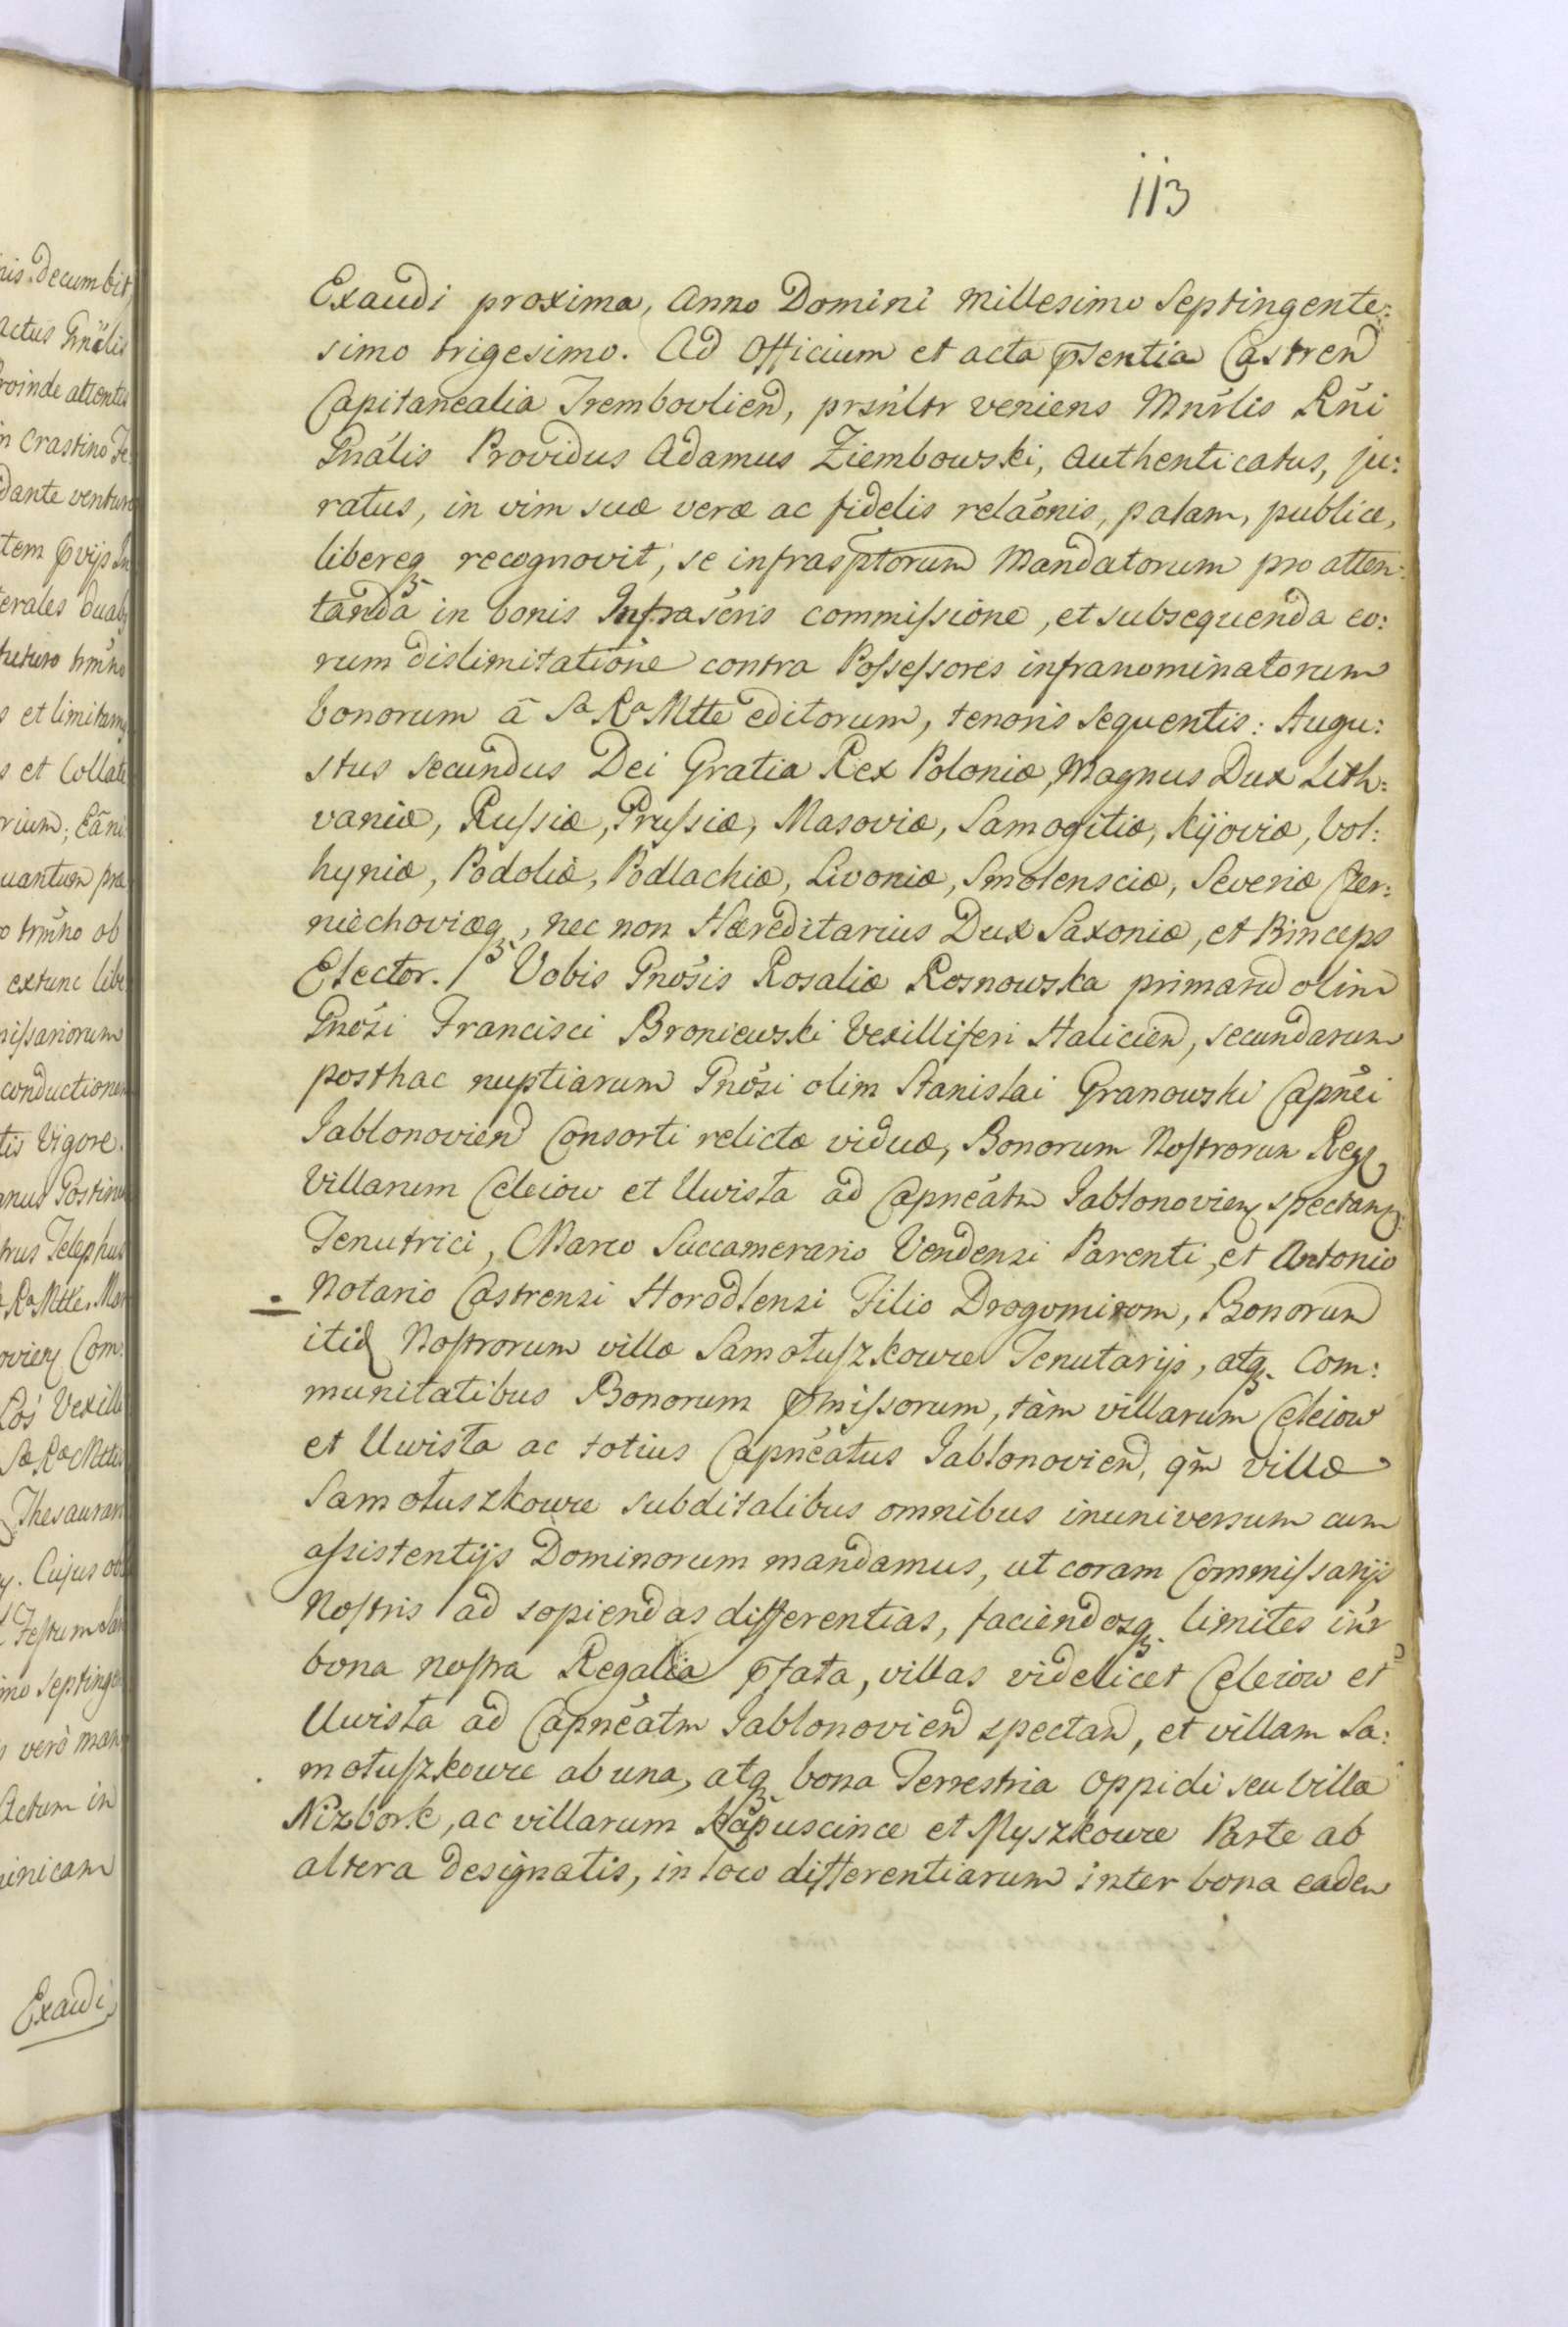 113
Exaudi proxima, Anno Domini Millesimo Septingente:
simo trigesimo. Ad Officium et acta pñtentia Castren
Capitanealia Trembovlien, prsńltr veniens Mnrlis Rńi
Gnális Providus Adamus Ziembowski, Authenticatus, ju:
ratus, in vim suæ veræ ac fidelis relaónis, palam, publice,
libereq recognovit, se infrasptorum Mandatorum pro atten:
tanda in bonis Infrascris commissione, et subsequenda eo:
rum dislimitatione contra Possessores infranominatorum
bonorum â Sa Ra Mtte editorum, tenoris sequentis: Augu:
stus secundus Dei Gratia Rex Poloniæ, Magnus Dux Lith:
vaniæ, Russiæ, Prussiæ, Masoviæ, Samogitiæ, Kijoviæ, Vol:
hyniæ, Podoliæ, Podlachiæ, Livoniæ, Smolensciæ, Severiæ Czer:
niechoviæq, nec non Hæreditarius Dux Saxoniæ, et Princeps
Elector. Vobis Gnósis Rosaliæ Rosnowska primarũ olim
Gnósi Francisci Broniewski Vexilliferi Halicien, secundarum
posthac nuptiarum Gnósi olim Stanislai Granowski Capnéi
Jablonovien Consorti relictæ viduæ, Bonorum Nostrorum Regl
Villarum Celeiow et Uwista ad Capneátm Jablonovien spectan
Tenutrici, Marco Succamerario Vendensi Parenti, et Antonio
Notario Castrensi Horodlensi Filio Drogomirom, Bonorum
itid Nostrorum villæ Samotuszkowce Tenutarijs, atq. Com:
munitatibus Bonorum pmissorum, tàm villarum Celeiow
et Uwista ac totius Capneátus Jablonovien, qm villæ
Samotuszkowce subditalibus omnibus inuniversum cum
assistentijs Dominorum mandamus, ut coram Commissarijs
Nostris ad sopiendas differentias, faciendosq. limites intr
bona nostra Regalia pfata, villas videlicet Celeiow et
Uwista ad Capneátm Jablonovien spectan, et villam Sa:
motuszkowce ab una, atq bona Terrestria Oppidi seu Villæ
Nizbork, ac villarum Kapuscince et Myszkowce Parte ab
altera designatis, in loco differentiarum inter bona eadem
nis decumbit
actus Gnälis
roinde attentis
in crastino Fe
dante ventur
erales duab
futuro
s et limitam
s et Collate
rium; Eáni
uantum præ
ob
extunc libe
missariorum
conductionem
tis Vigore.
Ra Mtte. Mar
ovien Com:
Vexill
Sæ Ræ Mttis
Thesaurar
Cujus
Festum
mo septinge
vero man
Actum in
inicam
Exaudi